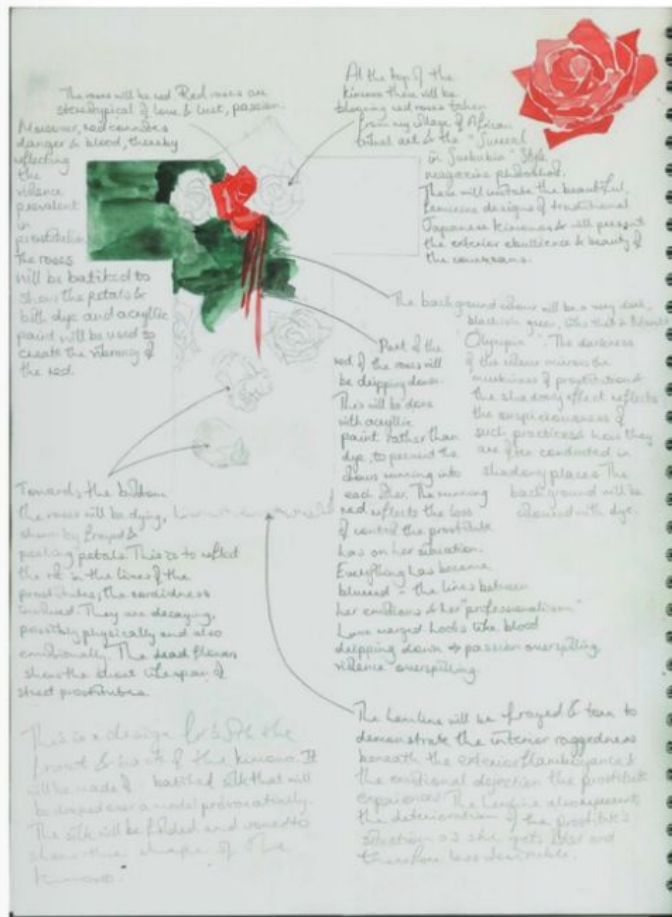 The roses will be red. Red roses are
stereotypical of love & lust, passion.
Moreover, red connotes
danger & blood, thereby
reflecting
the
violence
prevalent
in
prostitution.
The roses
will be batiked to
show the petals &
both dye and acrylic
paint will be used to
create the vibrancy of
the red.
At the top of the
kimono there will be
blooming red roses taken
from my collage of African
tribal art & the "Surreal
in Suburbia" Style
magazine photoshoot.
These will imitate the beautiful,
feminine designs of traditional
Japanese kimonos & will present
the exterior ebullience & beauty of
the courtesans.
The background colour will be a very dark,
blackish green, like that in
"Olympia". The darkness
of the colour mirrors the
murkiness of prostitution &
the shadowy effect reflects
the suspiciousness of
such practices & how they
are often conducted in
shadowy places. The
background will be
coloured with dye.
Part of the
red of the roses will
be dripping down.
This will be done
with acrylic
paint rather than
dye, to prevent the
colours running into
each other. The running
red reflects the loss
of control the prostitute
has on her situation.
Everything has become
blurred - the lines between
her emotions & her "professionalism"
have merged. Looks like blood
dripping down → passion overspilling
violence overspilling.
Towards the bottom
the roses will be dying,
shown by frayed &
peeling petals. This is to reflect
the rot in the lives of the
prostitutes, the sordidness
involved. They are decaying,
possibly physically and also
emotionally. The dead flowers
show the short lifespan of
street prostitutes.
This is a design for both the
front & back of the kimono. It
will be made of batiked silk that will
be draped over a model provocatively.
The silk will be folded and sewed to
show the shape of the
kimono.
The hemline will be frayed & torn to
demonstrate the interior raggedness
beneath the exterior flamboyance &
the emotional dejection the prostitute
experiences. The hemline also represents
the deterioration of the prostitute's
situation as she gets older and
therefore less desirable.